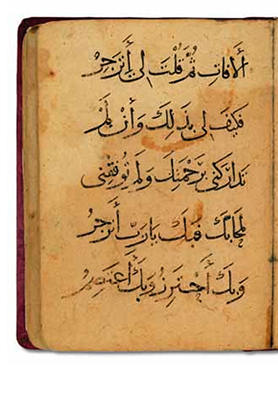 الآفات ثم قلت لي أنزجر
فكيف لي بذلك وأن لم
تداركني برحمتك ولم توفقني
لمحابك فبك يارب أنزجر
وبك أحترز وبك أعتصر